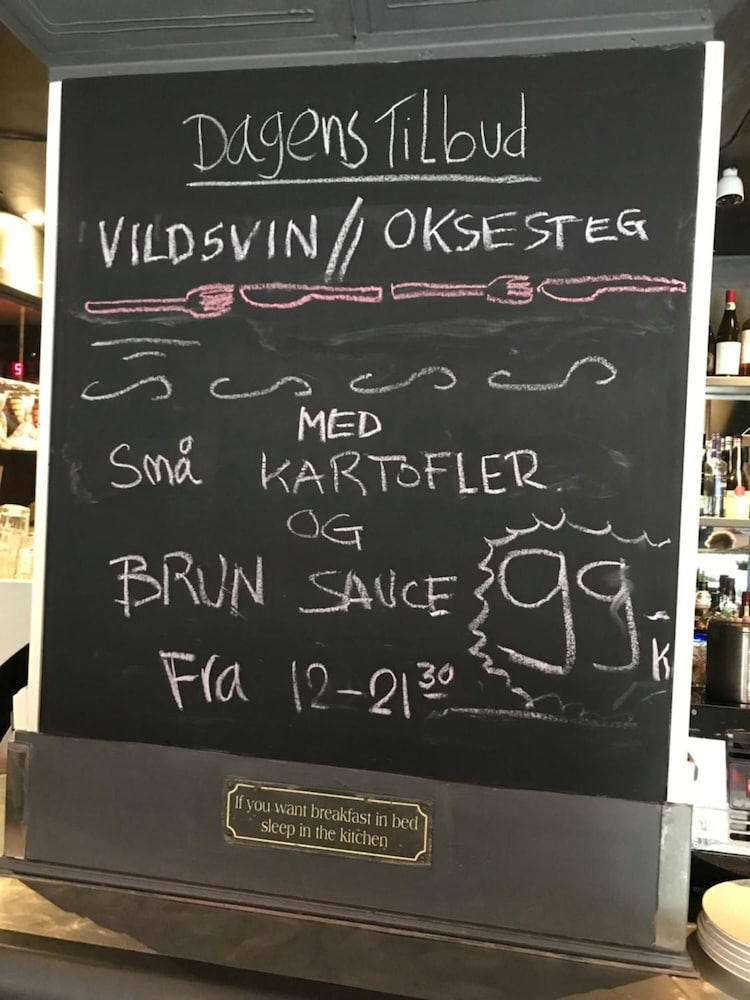 Dagens Tilbud
VILDSVIN // OKSESTEG
MED
Små KARTOFLER
OG
BRUN SAUCE 99,-
K
Fra 12-21³⁰
If you want breakfast in bed
sleep in the kitchen